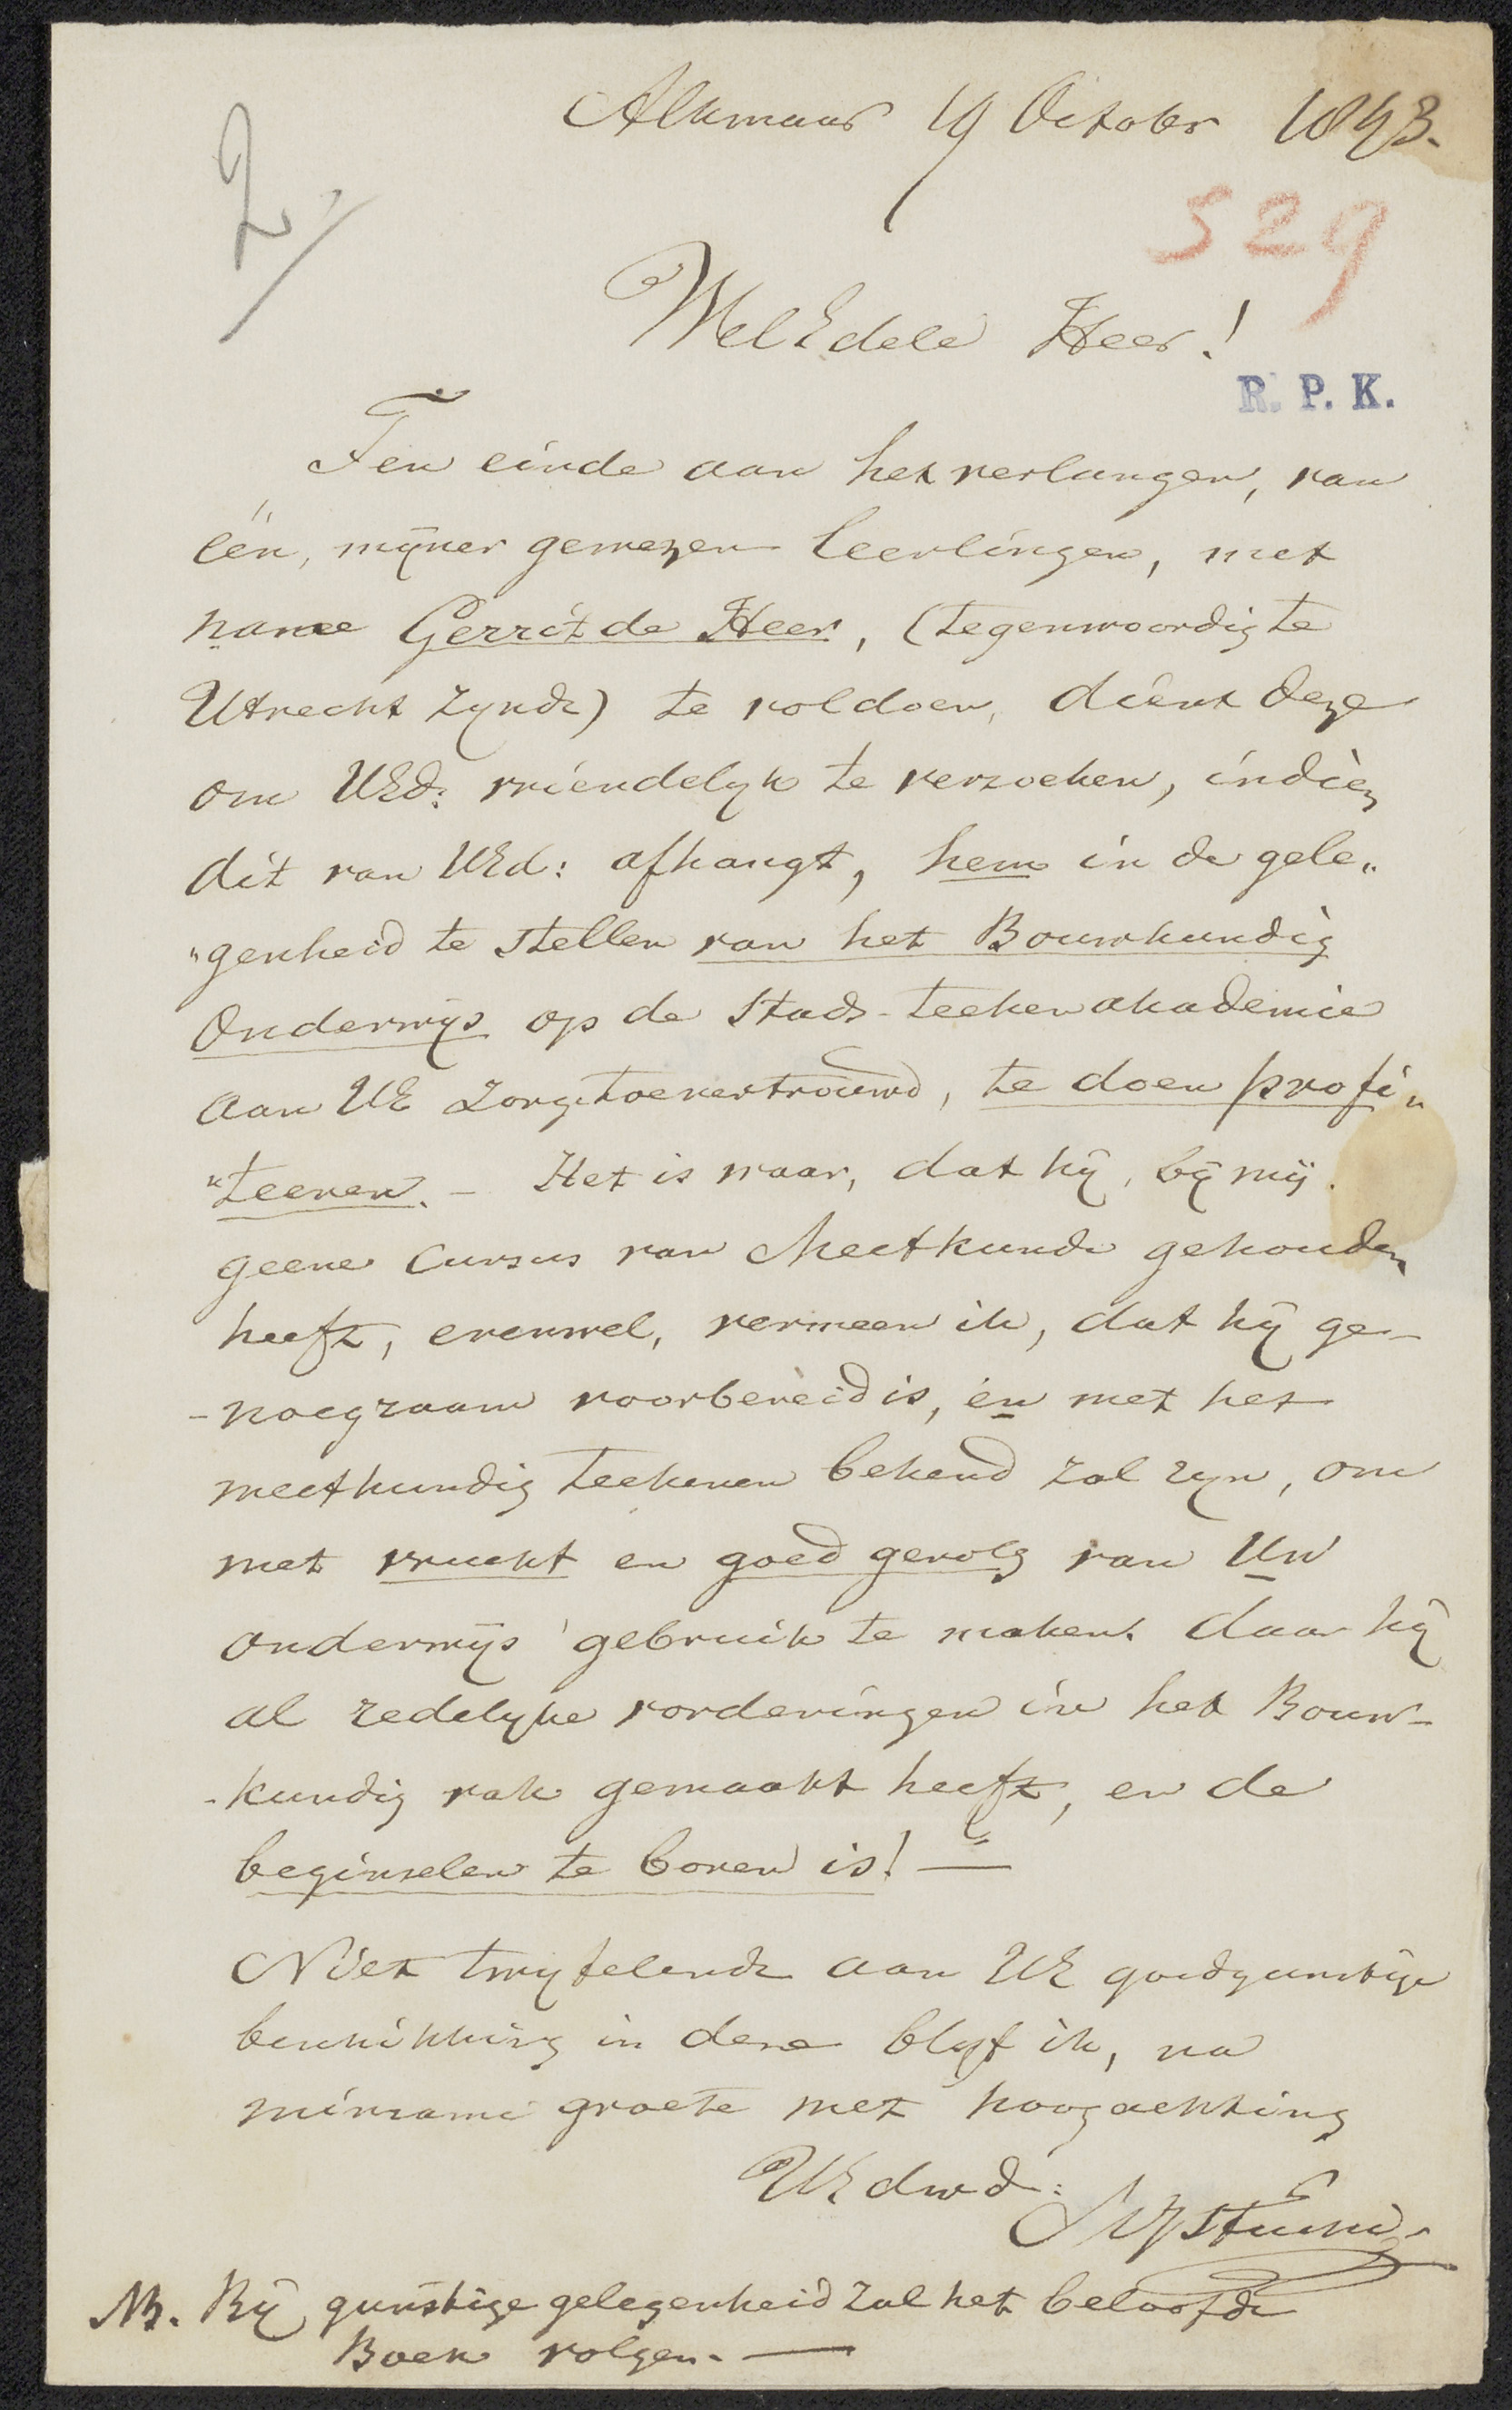 Alkmaar 19 October 1843.
2
529
WelEdele Heer!
R. P. K.
Ten einde aan het verlangen, van
één, mijner gewezen leerlingen, met
name Gerrit de Heer, (tegenwoordig te
Utrecht zynde) te voldoen, dient deze
om UEd: vriendelyk te verzoeken, indien
dit van UEd: afhangt, hem in de gele„
„genheid te stellen van het Bouwkundig
Onderwijs op de Stads-teekenakademie
aan UE zorg toevertrouwd, te doen profi„
„teeren. – Het is waar, dat hij, bij mij
geene Cursus van Meetkunde gehouden
heeft, evenwel, vermeen ik, dat hij ge-
-noegzaam voorbereid is, en met het
meetkundig teekenen bekend zal zyn, om
met vrucht en goed gevolg van Uw
onderwijs gebruik te maken. daar hij
al redelyke vorderingen in het Bouw-
-kundig vak gemaakt heeft, en de
beginselen te boven is! —
Niet twyfelende aan UE goedgunstige
beschikking in deze blyf ik, na
minzame groete met hoogachting
UEdwd:
NB. Bij gunstige gelegenheid zal het beloofde
Boek volgen. —